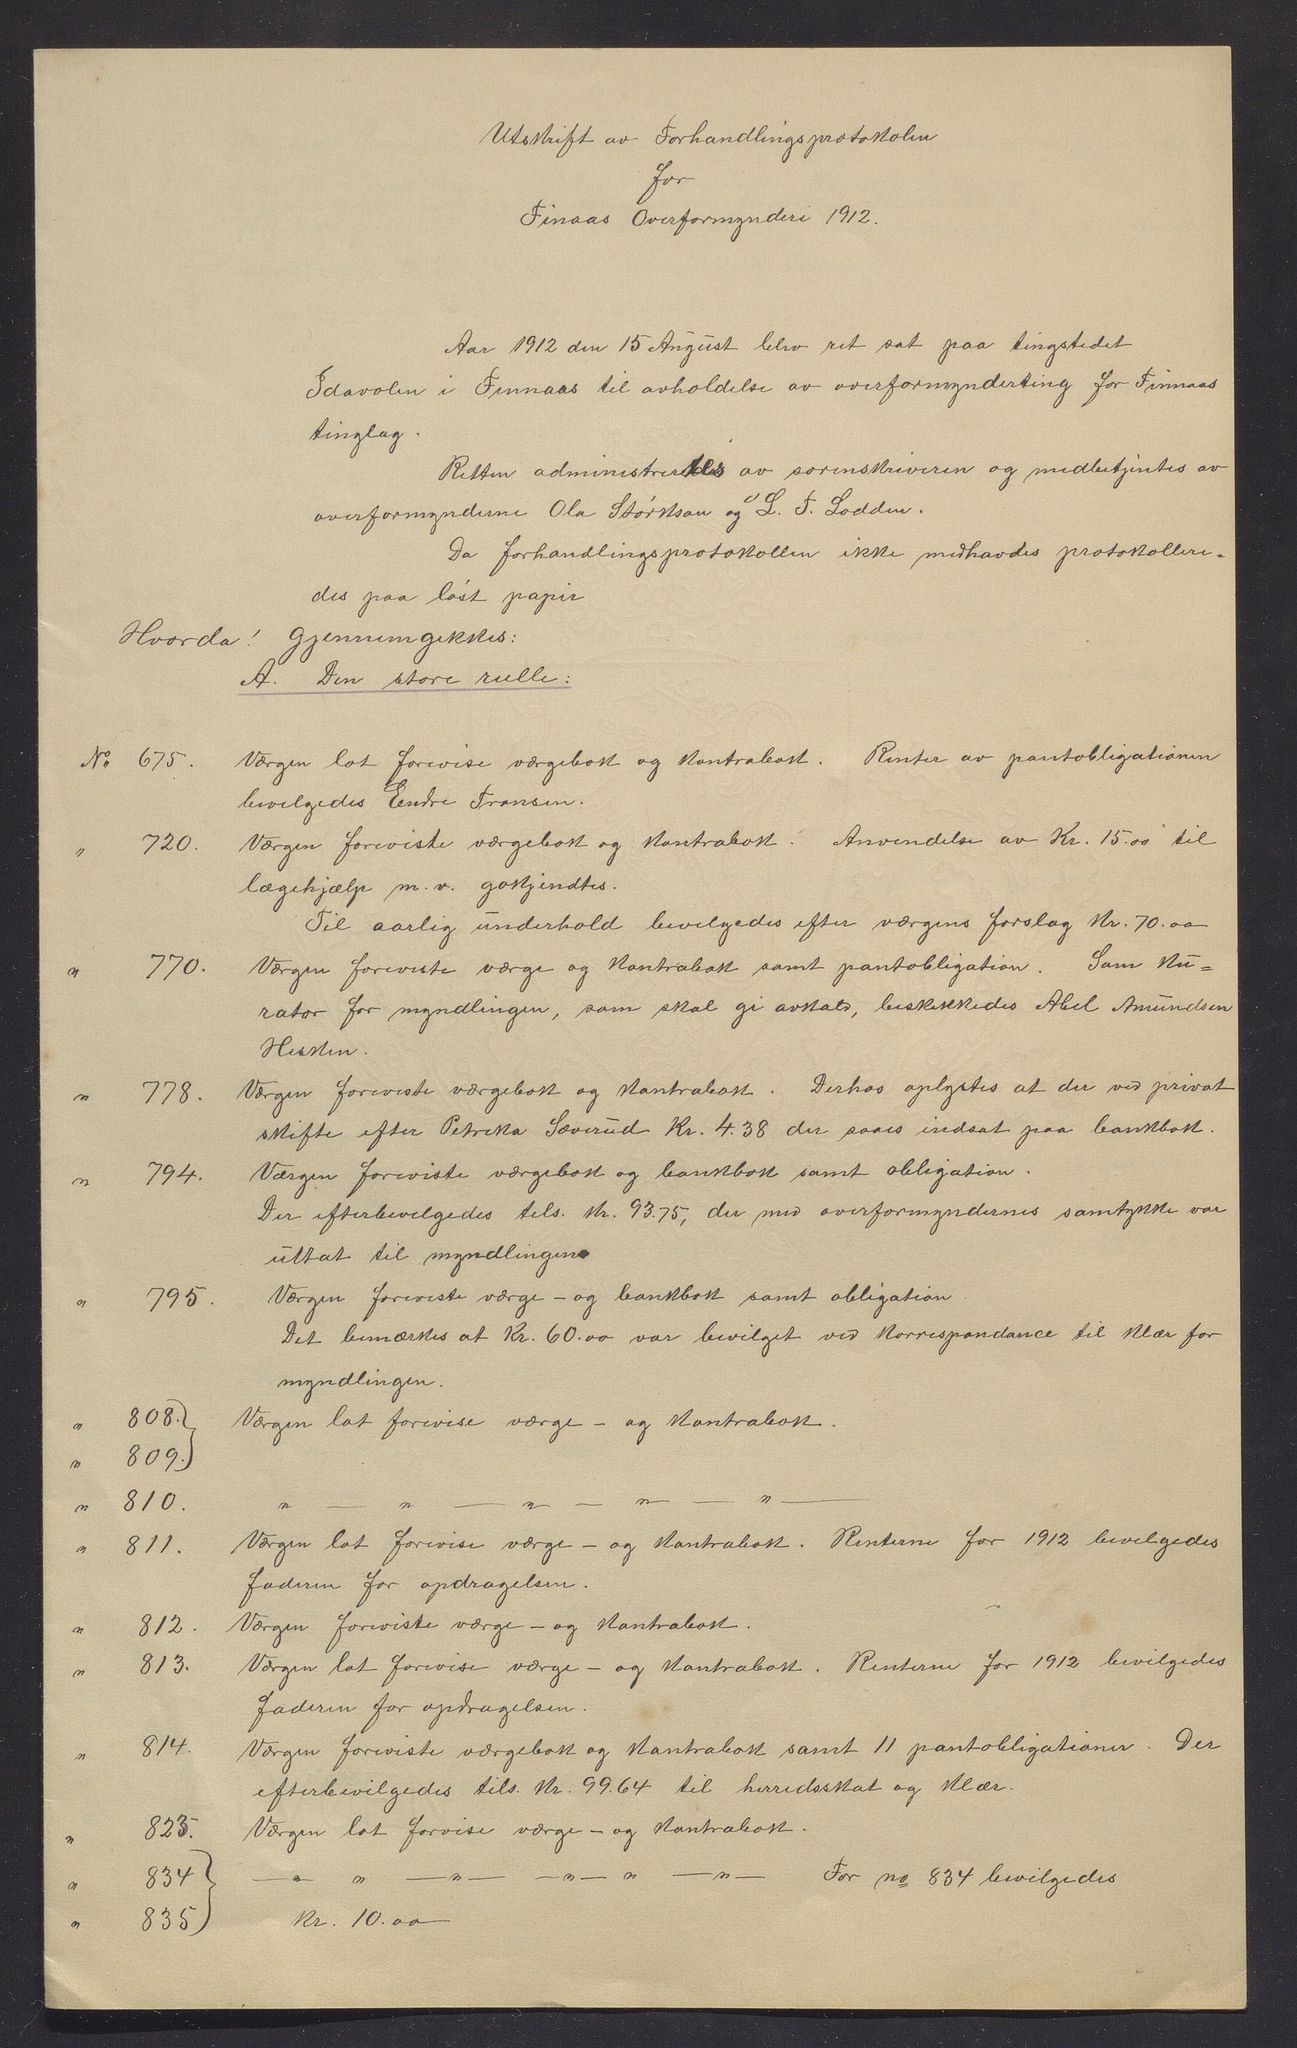 Utskrift av Forhandlingsprotokolen
for
Finaas Overformynderi 1912.
Aar 1912 den 15 August blev ret sat paa tingstedet
Idavolen i Finnaas til avholdelse av overformynderting for Finnaas
tinglag.
Retten administrertes av sorenskriveren og medbetjentes av
overformynderne Ola Størkson og L. T. Lodden.
Da forhandlingsprotokollen ikke medhavdes protokollere-
des paa løst papir
Hvorda! Gjennemgikkes:
A. Den store rulle:
No 675. Værgen lot forevise værgebok og kontrabok. Renter av pantobligationen
bevilgedes Endre Fransen.
" 720. Værgen foreviste værgebok og kontrabok. Anvendelse av Kr. 15.00 til
lægehjælp m.v. gokjendtes.
Til aarlig underhold bevilgedes efter værgens forslag kr. 70.00
" 770. Værgen foreviste værge og kontrabok samt pantobligation. Som ku=
rator for myndlingen, som skal gi avkald, beskikkedes Abel Amundsen
Hisken.
" 778. Værgen foreviste værgebok og kontrabok. Derhos oplystes at der ved privat
skifte efter Petrika Sæverud Kr. 4.38 der saaes indsat paa bankbok.
" 794. Værgen foreviste værgebok og bankbok samt obligation.
Der efterbevilgedes tils. kr. 93.75, der med overformyndernes samtykke var
uttat til myndlingen
" 795. Værgen foreviste værge - og bankbok samt obligation
Det bemærkes at Kr. 60.00 var bevilget ved korrespondance til klær for
myndlingen.
" 808.} Værgen lot forevise værge - og kontrabok.
" 809.}
" 810. " — " — " — " — " —
" 811. Værgen lot forevise værge - og kontrabok. Renterne for 1912 bevilgedes
faderen for opdragelsen.
" 812. Værgen foreviste værge - og kontrabok.
" 813. Værgen lot forevise værge - og kontrabok. Renterne for 1912 bevilgedes
faderen for opdragelsen.
" 814. Værgen foreviste værgebok og kontrabok samt 11 pantobligationer. Der
efterbevilgedes tils. kr. 99.64 til herredsskat og klær.
" 823. Værgen lot forvise værge - og kontrabok.
" 834} — " " — " — — " — " — " — For no 834 bevilgedes
" 835} kr. 10.00